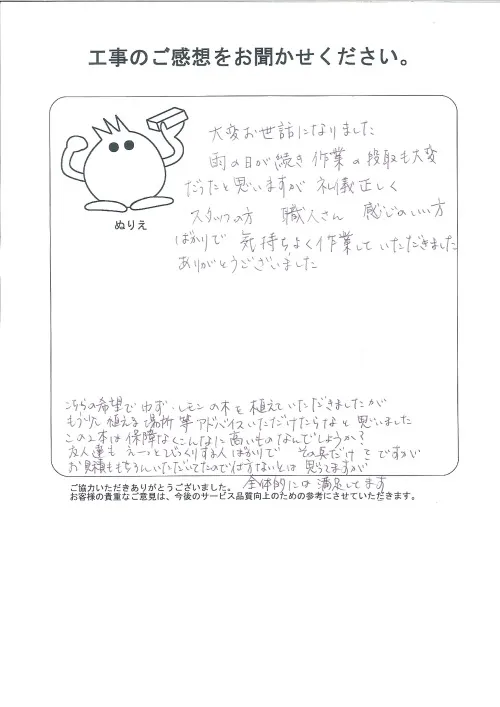 工事のご感想をお聞かせください。
ぬりえ
大変お世話になりました
雨の日が続き 作業の段取も大変
だったと思いますが 礼儀正しく
スタッフの方 職人さん 感じのいい方
ばかりで 気持ちよく作業していただきました
ありがとうございました
こちらの希望でゆず・レモンの木を植えていただきましたが
もう少し植える場所等アドバイスいただけたらなと思いました
この2本は保障なくこんなに高いものなんでしょうか?
友人達も えーっとびっくりする人ばかりで その点だけ ですが
お見積ももちろんいただいてたので仕方ないとは 思ってますが
全体的には満足してます
ご協力いただきありがとうございました。
お客様の貴重なご意見は、今後のサービス品質向上のための参考にさせていただきます。